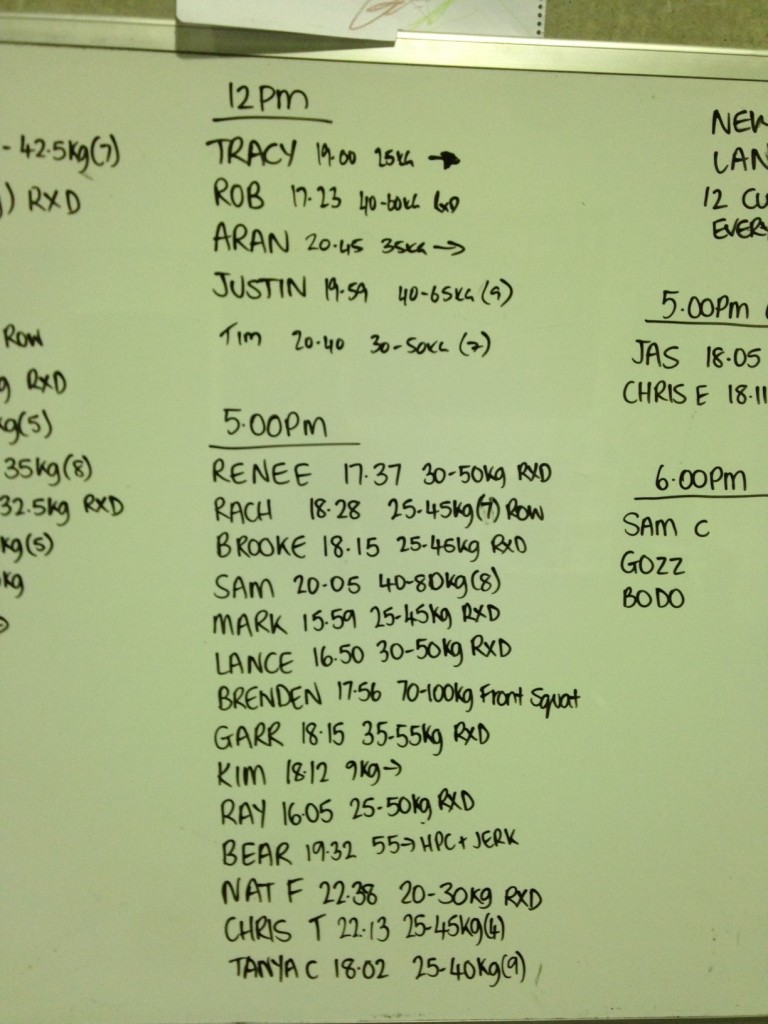 - 42.5kg(7)
) RXD
Row
g RXD
kg(5)
35kg(8)
32.5kg RXD
kg(5)
kg
12pm
TRACY 19.00 25KG →
ROB 17.23 40-60KG
ARAN 20.45 35KG →
JUSTIN 19.59 40-65KG (9)
Tim 20.40 30-50KG (7)
5.00pm
RENEE 17.37 30-50kg RXD
RACH 18.28 25-45kg(7) Row
BROOKE 18.15 25-45kg RXD
SAM 20.05 40-80kg(8)
MARK 15.59 25-45kg RXD
LANCE 16.50 30-50kg RXD
BRENDEN 17.56 70-100kg Front Squat
GARR 18.15 35-55kg RXD
KIM 18.12 9kg→
RAY 16.05 25-50kg RXD
BEAR 19.32 55→HPC+JERK
NAT F 22.38 20-30kg RXD
CHRIS T 22.13 25-45kg(4)
TANYA C 18.02 25-40kg(9)
NEW
LAN
12 CU
EVERY
5.00pm
JAS 18.05
CHRIS E 18.11
6.00pm
SAM C
GOZZ
BODO